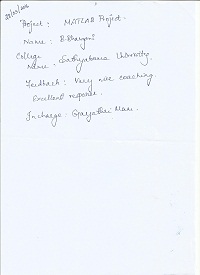 Project: MATLAB Project.
Name: B.Bhargavi
College
Name: Sathyabama University.
Feedback: Very nice coaching
Excellent response.
Incharge: Gayathri Mam.